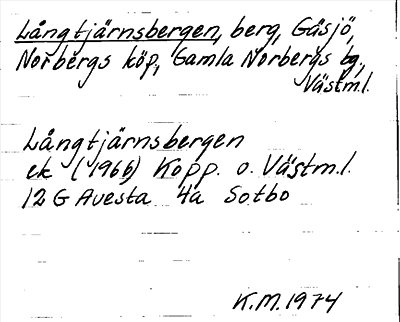 Långtjärnsbergen, berg, Gåsjö,
Norbergs köp, Gamla Norbergs bg,
Västm.l.
Långtjärnsbergen
ek (1966) Kopp. o. Västm.l.
12 G Avesta 4a Sotbo
K.M. 1974